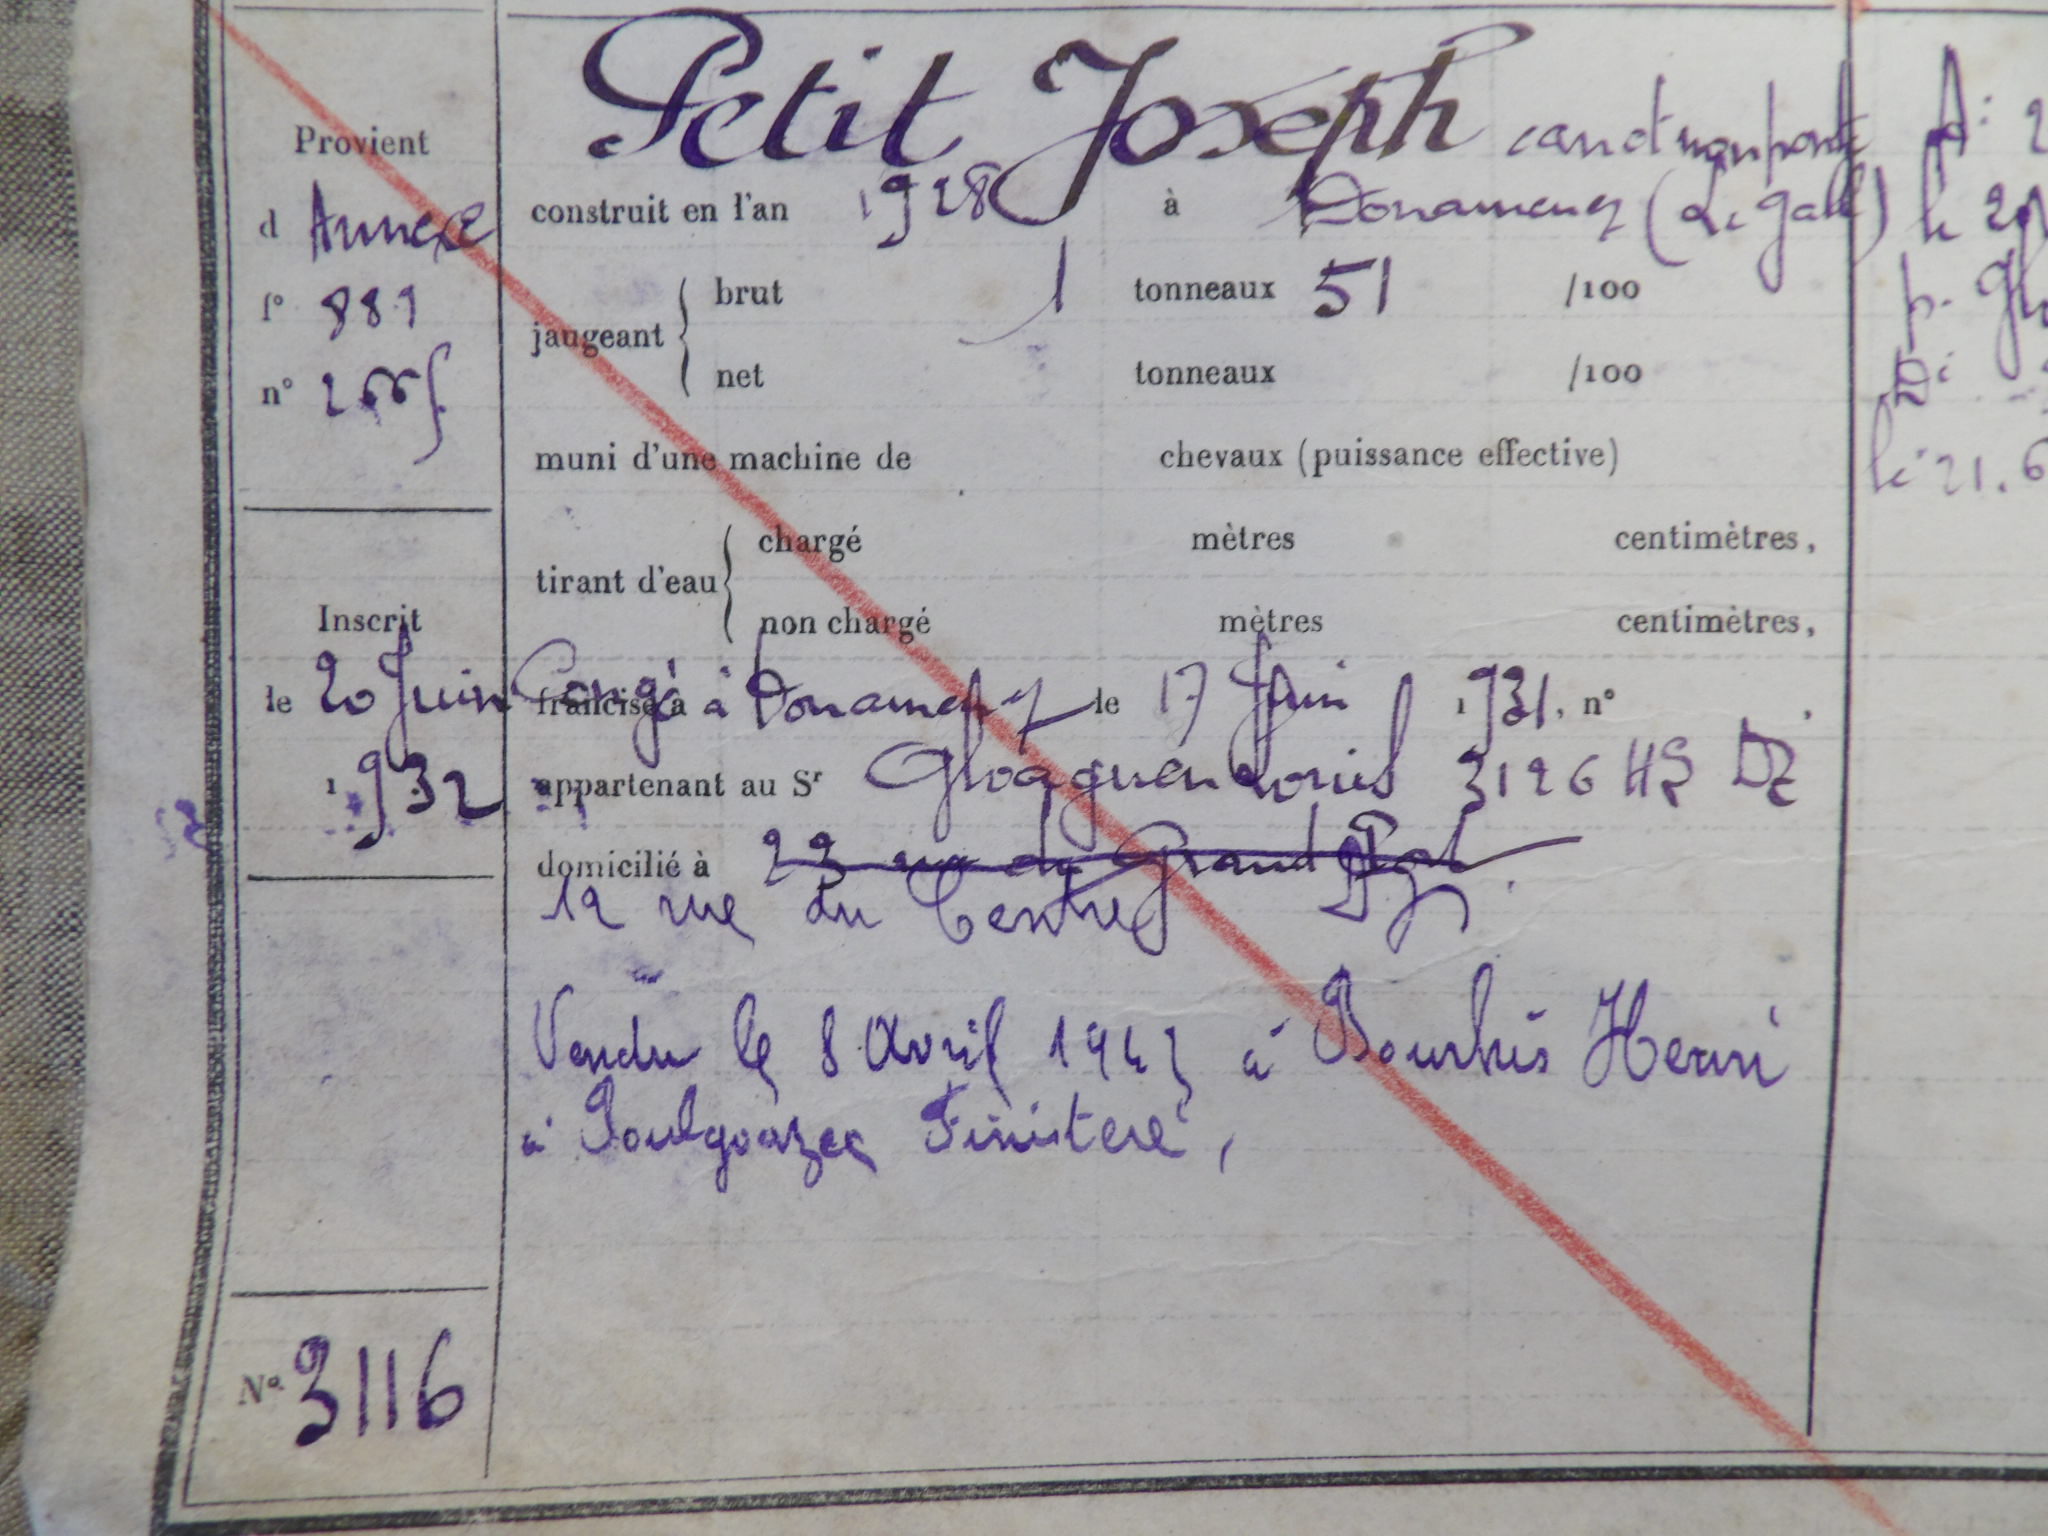 Petit Joseph canot non ponté
Provient
d Annexe
f° 881
n°
construit en l'an 1928 à Douarnenez (Le Gall)
jaugeant { brut 1 tonneaux 51 /100
net tonneaux /100
muni d'une machine de chevaux (puissance effective)
tirant d'eau { chargé mètres centimètres,
non chargé mètres centimètres,
Inscrit
le 20 Juin
1932
francisé à Congé à Douarnenez le 17 Juin 1931. n°
appartenant au Sr Gloaguen Louis 3126 HS DZ
domicilié à 23 rue du Grand Port
12 rue du Centre Dz
Vendu le 8 Avril 1943 à Bourhis Henri
à Poulgoazec Finistere,
N° 3116
A: 2
le 29
p. Glo
D:
le 21.6